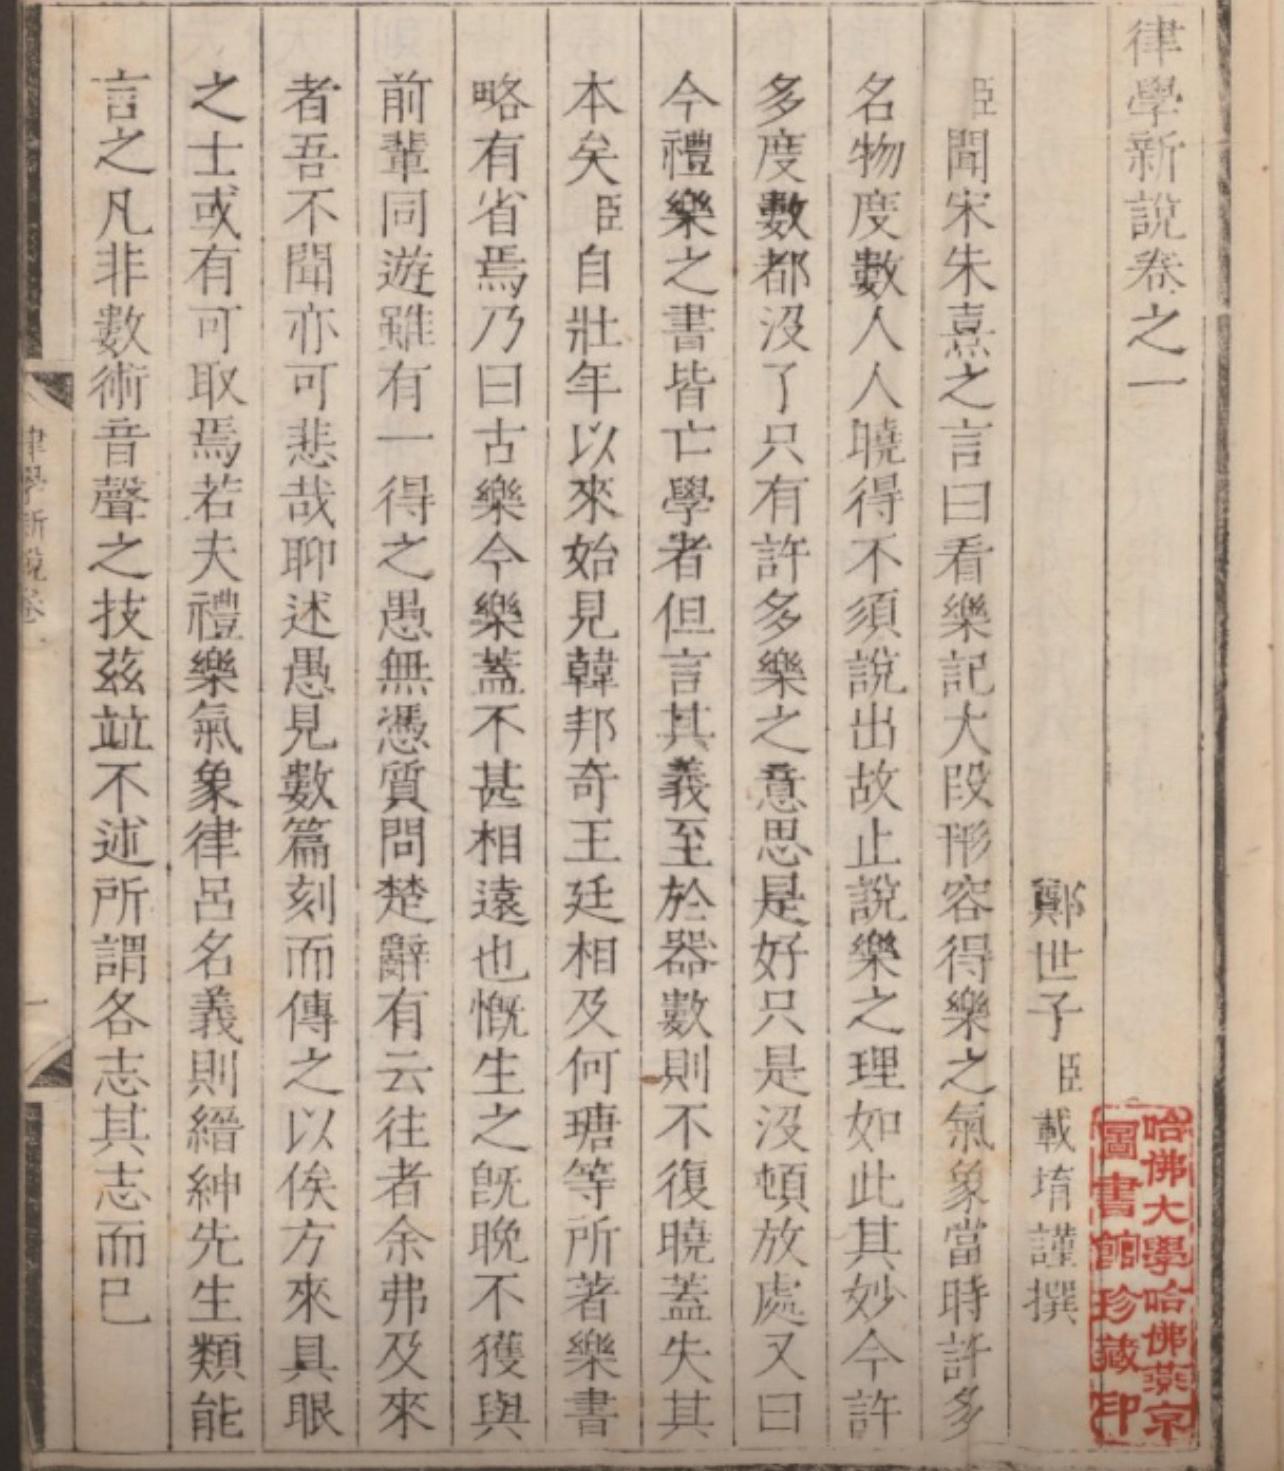 律學新說卷之一
鄭世子臣載堉謹撰
臣聞宋朱熹之言曰看樂記大段形容得樂之氣象當時許多
名物度數人人曉得不須說出故止說樂之理如此其妙今許
多度數都沒了只有許多樂之意思是好只是沒頓放處又曰
今禮樂之書皆亡學者但言其義至於器數則不復曉蓋失其
本矣臣自壯年以來始見韓邦奇王廷相及何瑭等所著樂書
略有省焉乃曰古樂今樂蓋不甚相遠也慨生之旣晚不獲與
前輩同遊雖有一得之愚無憑質問楚辭有云往者余弗及來
者吾不聞亦可悲哉聊述愚見數篇刻而傳之以俟方來具眼
之士或有可取焉若夫禮樂氣象律呂名義則縉紳先生類能
言之凡非數術音聲之技茲竝不述所謂各志其志而已
律學新說卷一
一
哈佛大學哈佛燕京
圖書館珍藏印